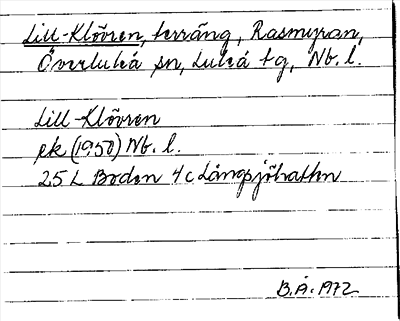 Lill-Klövren, terräng, Rasmyran,
Överluleå sn, Luleå tg, Nb. l.
Lill-Klövren
ek (1950) Nb. l.
25 L Boden 4c Långsjöhatten
B.Å. 1972